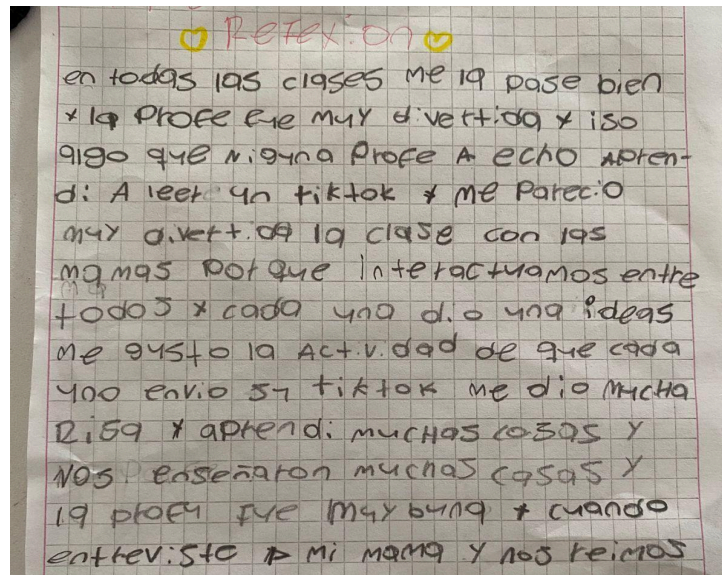 Refexion
en todas las clases me la pase bien
y la Profe fue muy divertida y iso
algo que niguna Profe A echo Apren-
di A leer un tiktok y me Parecio
muy divertida la clase con las
mamas porque interactuamos entre
todos y cada una dio una ideas
me gusto la Actividad de que cada
uno envio su tiktok me dio mucHa
Risa y aprendi mucHas cosas y
Nos enseñaron muchas casas y
la profu fue muy buna y cuando
entreviste A mi mama y nos reimos